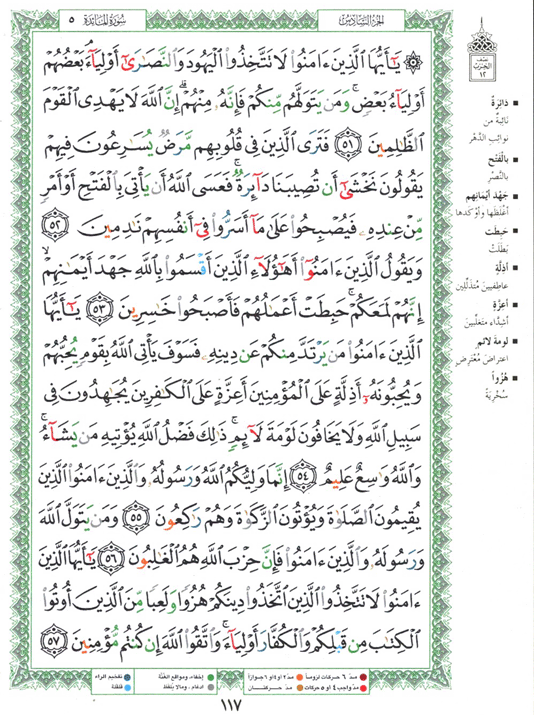 سُورَةُ المَائدة ٥
الجزء السَّادِسُ
يَـٰٓأَيُّهَا ٱلَّذِينَ ءَامَنُوا۟ لَا تَتَّخِذُوا۟ ٱلْيَهُودَ وَٱلنَّصَـٰرَىٰٓ أَوْلِيَآءَۘ بَعْضُهُمْ
أَوْلِيَآءُ بَعْضٍۚ وَمَن يَتَوَلَّهُم مِّنكُمْ فَإِنَّهُۥ مِنْهُمْۗ إِنَّ ٱللَّهَ لَا يَهْدِى ٱلْقَوْمَ
ٱلظَّـٰلِمِينَ ٥١ فَتَرَى ٱلَّذِينَ فِى قُلُوبِهِم مَّرَضٌ يُسَـٰرِعُونَ فِيهِمْ
يَقُولُونَ نَخْشَىٰٓ أَن تُصِيبَنَا دَآئِرَةٌۚ فَعَسَى ٱللَّهُ أَن يَأْتِىَ بِٱلْفَتْحِ أَوْ أَمْرٍ
مِّنْ عِندِهِۦ فَيُصْبِحُوا۟ عَلَىٰ مَآ أَسَرُّوا۟ فِىٓ أَنفُسِهِمْ نَـٰدِمِينَ ٥٢
وَيَقُولُ ٱلَّذِينَ ءَامَنُوٓا۟ أَهَـٰٓؤُلَآءِ ٱلَّذِينَ أَقْسَمُوا۟ بِٱللَّهِ جَهْدَ أَيْمَـٰنِهِمْۙ
إِنَّهُمْ لَمَعَكُمْۚ حَبِطَتْ أَعْمَـٰلُهُمْ فَأَصْبَحُوا۟ خَـٰسِرِينَ ٥٣ يَـٰٓأَيُّهَا
ٱلَّذِينَ ءَامَنُوا۟ مَن يَرْتَدَّ مِنكُمْ عَن دِينِهِۦ فَسَوْفَ يَأْتِى ٱللَّهُ بِقَوْمٍ يُحِبُّهُمْ
وَيُحِبُّونَهُۥٓ أَذِلَّةٍ عَلَى ٱلْمُؤْمِنِينَ أَعِزَّةٍ عَلَى ٱلْكَـٰفِرِينَ يُجَـٰهِدُونَ فِى
سَبِيلِ ٱللَّهِ وَلَا يَخَافُونَ لَوْمَةَ لَآئِمٍۚ ذَٰلِكَ فَضْلُ ٱللَّهِ يُؤْتِيهِ مَن يَشَآءُۚ
وَٱللَّهُ وَٰسِعٌ عَلِيمٌ ٥٤ إِنَّمَا وَلِيُّكُمُ ٱللَّهُ وَرَسُولُهُۥ وَٱلَّذِينَ ءَامَنُوا۟ ٱلَّذِينَ
يُقِيمُونَ ٱلصَّلَوٰةَ وَيُؤْتُونَ ٱلزَّكَوٰةَ وَهُمْ رَٰكِعُونَ ٥٥ وَمَن يَتَوَلَّ ٱللَّهَ
وَرَسُولَهُۥ وَٱلَّذِينَ ءَامَنُوا۟ فَإِنَّ حِزْبَ ٱللَّهِ هُمُ ٱلْغَـٰلِبُونَ ٥٦ يَـٰٓأَيُّهَا ٱلَّذِينَ
ءَامَنُوا۟ لَا تَتَّخِذُوا۟ ٱلَّذِينَ ٱتَّخَذُوا۟ دِينَكُمْ هُزُوًا وَلَعِبًا مِّنَ ٱلَّذِينَ أُوتُوا۟
ٱلْكِتَـٰبَ مِن قَبْلِكُمْ وَٱلْكُفَّارَ أَوْلِيَآءَۚ وَٱتَّقُوا۟ ٱللَّهَ إِن كُنتُم مُّؤْمِنِينَ ٥٧
نصف
الحزب
١٢
دَائِرَةٌ
نائِبَةٌ من
نوائب الدَّهْر
بالْفَتْح
بالنَّصْر
جَهْدَ أيْمَانِهِم
أغلظَها وأوْكَدها
حَبِطَت
بَطَلَتْ
أذلَّةٍ
عاطِفينَ مُتَذَلِّلين
أعِزَّةٍ
أشِدَّاءَ متغلّبين
لَوْمَةَ لائمٍ
اعتراضَ مُعْتَرِض
هُزُواً
سُخْرِيَةً
مدّ ٦ حركات لزوماً
مدّ ٢ أو ٤ أو ٦ جوازاً
إخفاء، ومواقع الغُنَّة
تفخيم الراء
مدّ واجب ٤ أو ٥ حركات
مدّ حركتان
ادغام، ومالا يُلفَظ
قلقلة
١١٧